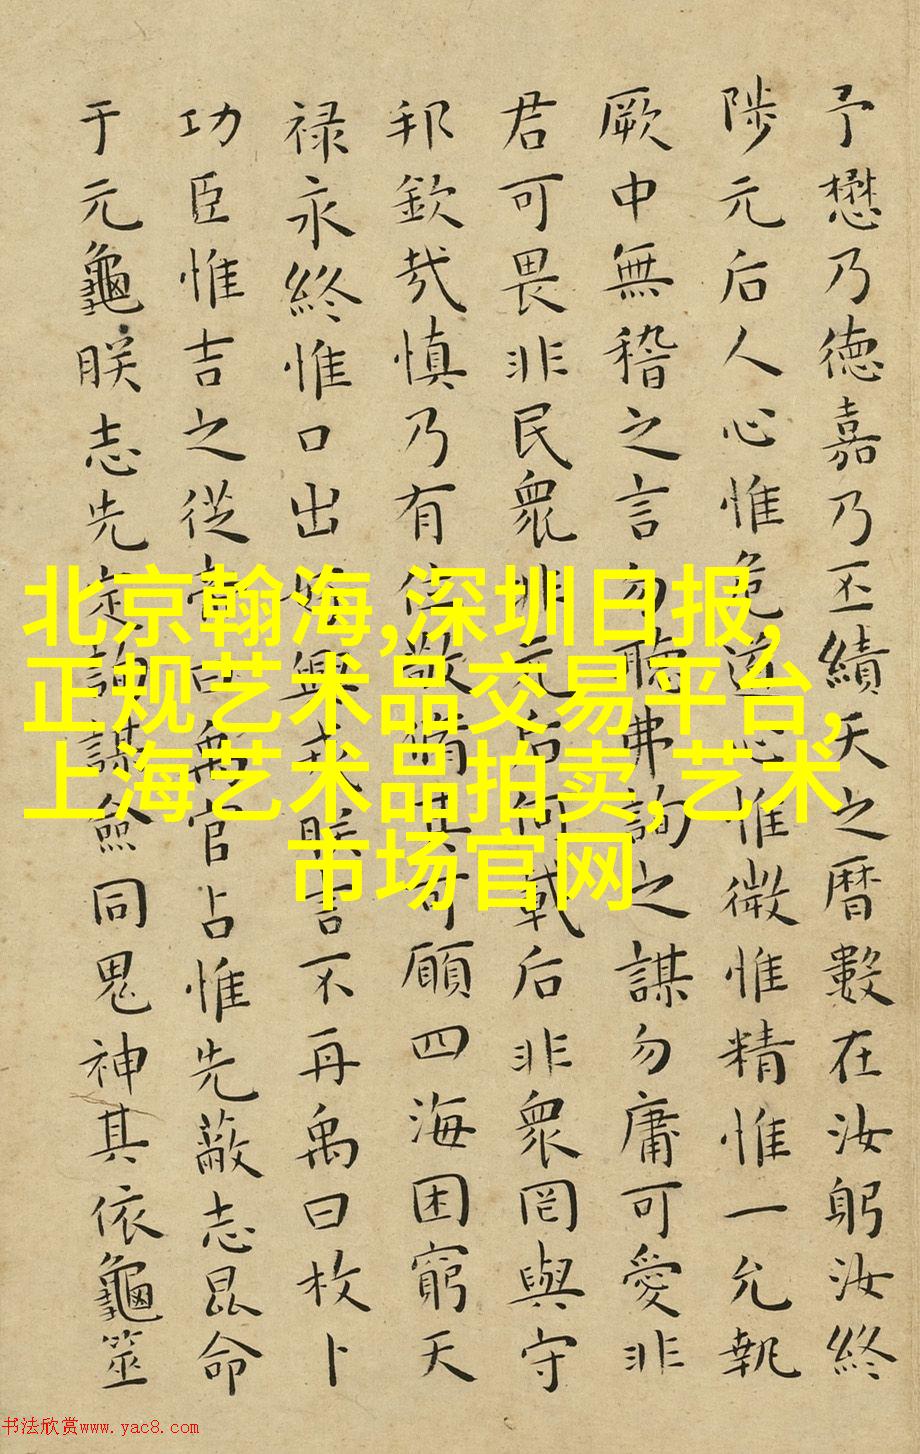 予懋乃徳嘉乃丕績天之暦數在汝躬汝終
陟元后人心惟危道心惟微惟精惟一允執
厥中無稽之言勿聽弗詢之謀勿庸可愛非
君可畏非民衆非元后何戴后非衆罔與守
邦欽哉慎乃有位敬脩其可願四海困窮天
禄永終惟口出好興戎朕言不再禹曰枚卜
功臣惟吉之從帝曰禹官占惟先蔽志昆命
于元龜朕志先定詢謀僉同鬼神其依龜筮
北京翰海,深圳日报,
正规艺术品交易平台,
上海艺术品拍卖,艺术
市场官网
书法欣赏www.yac8.com